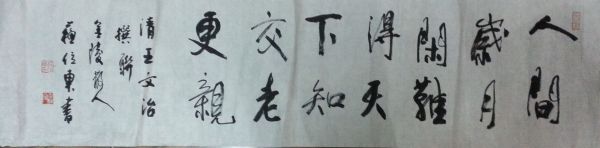 人間
歲月
閑難
得天
下知
交老
更親
清王文治
撰聯
金陵前人
蘇位東書